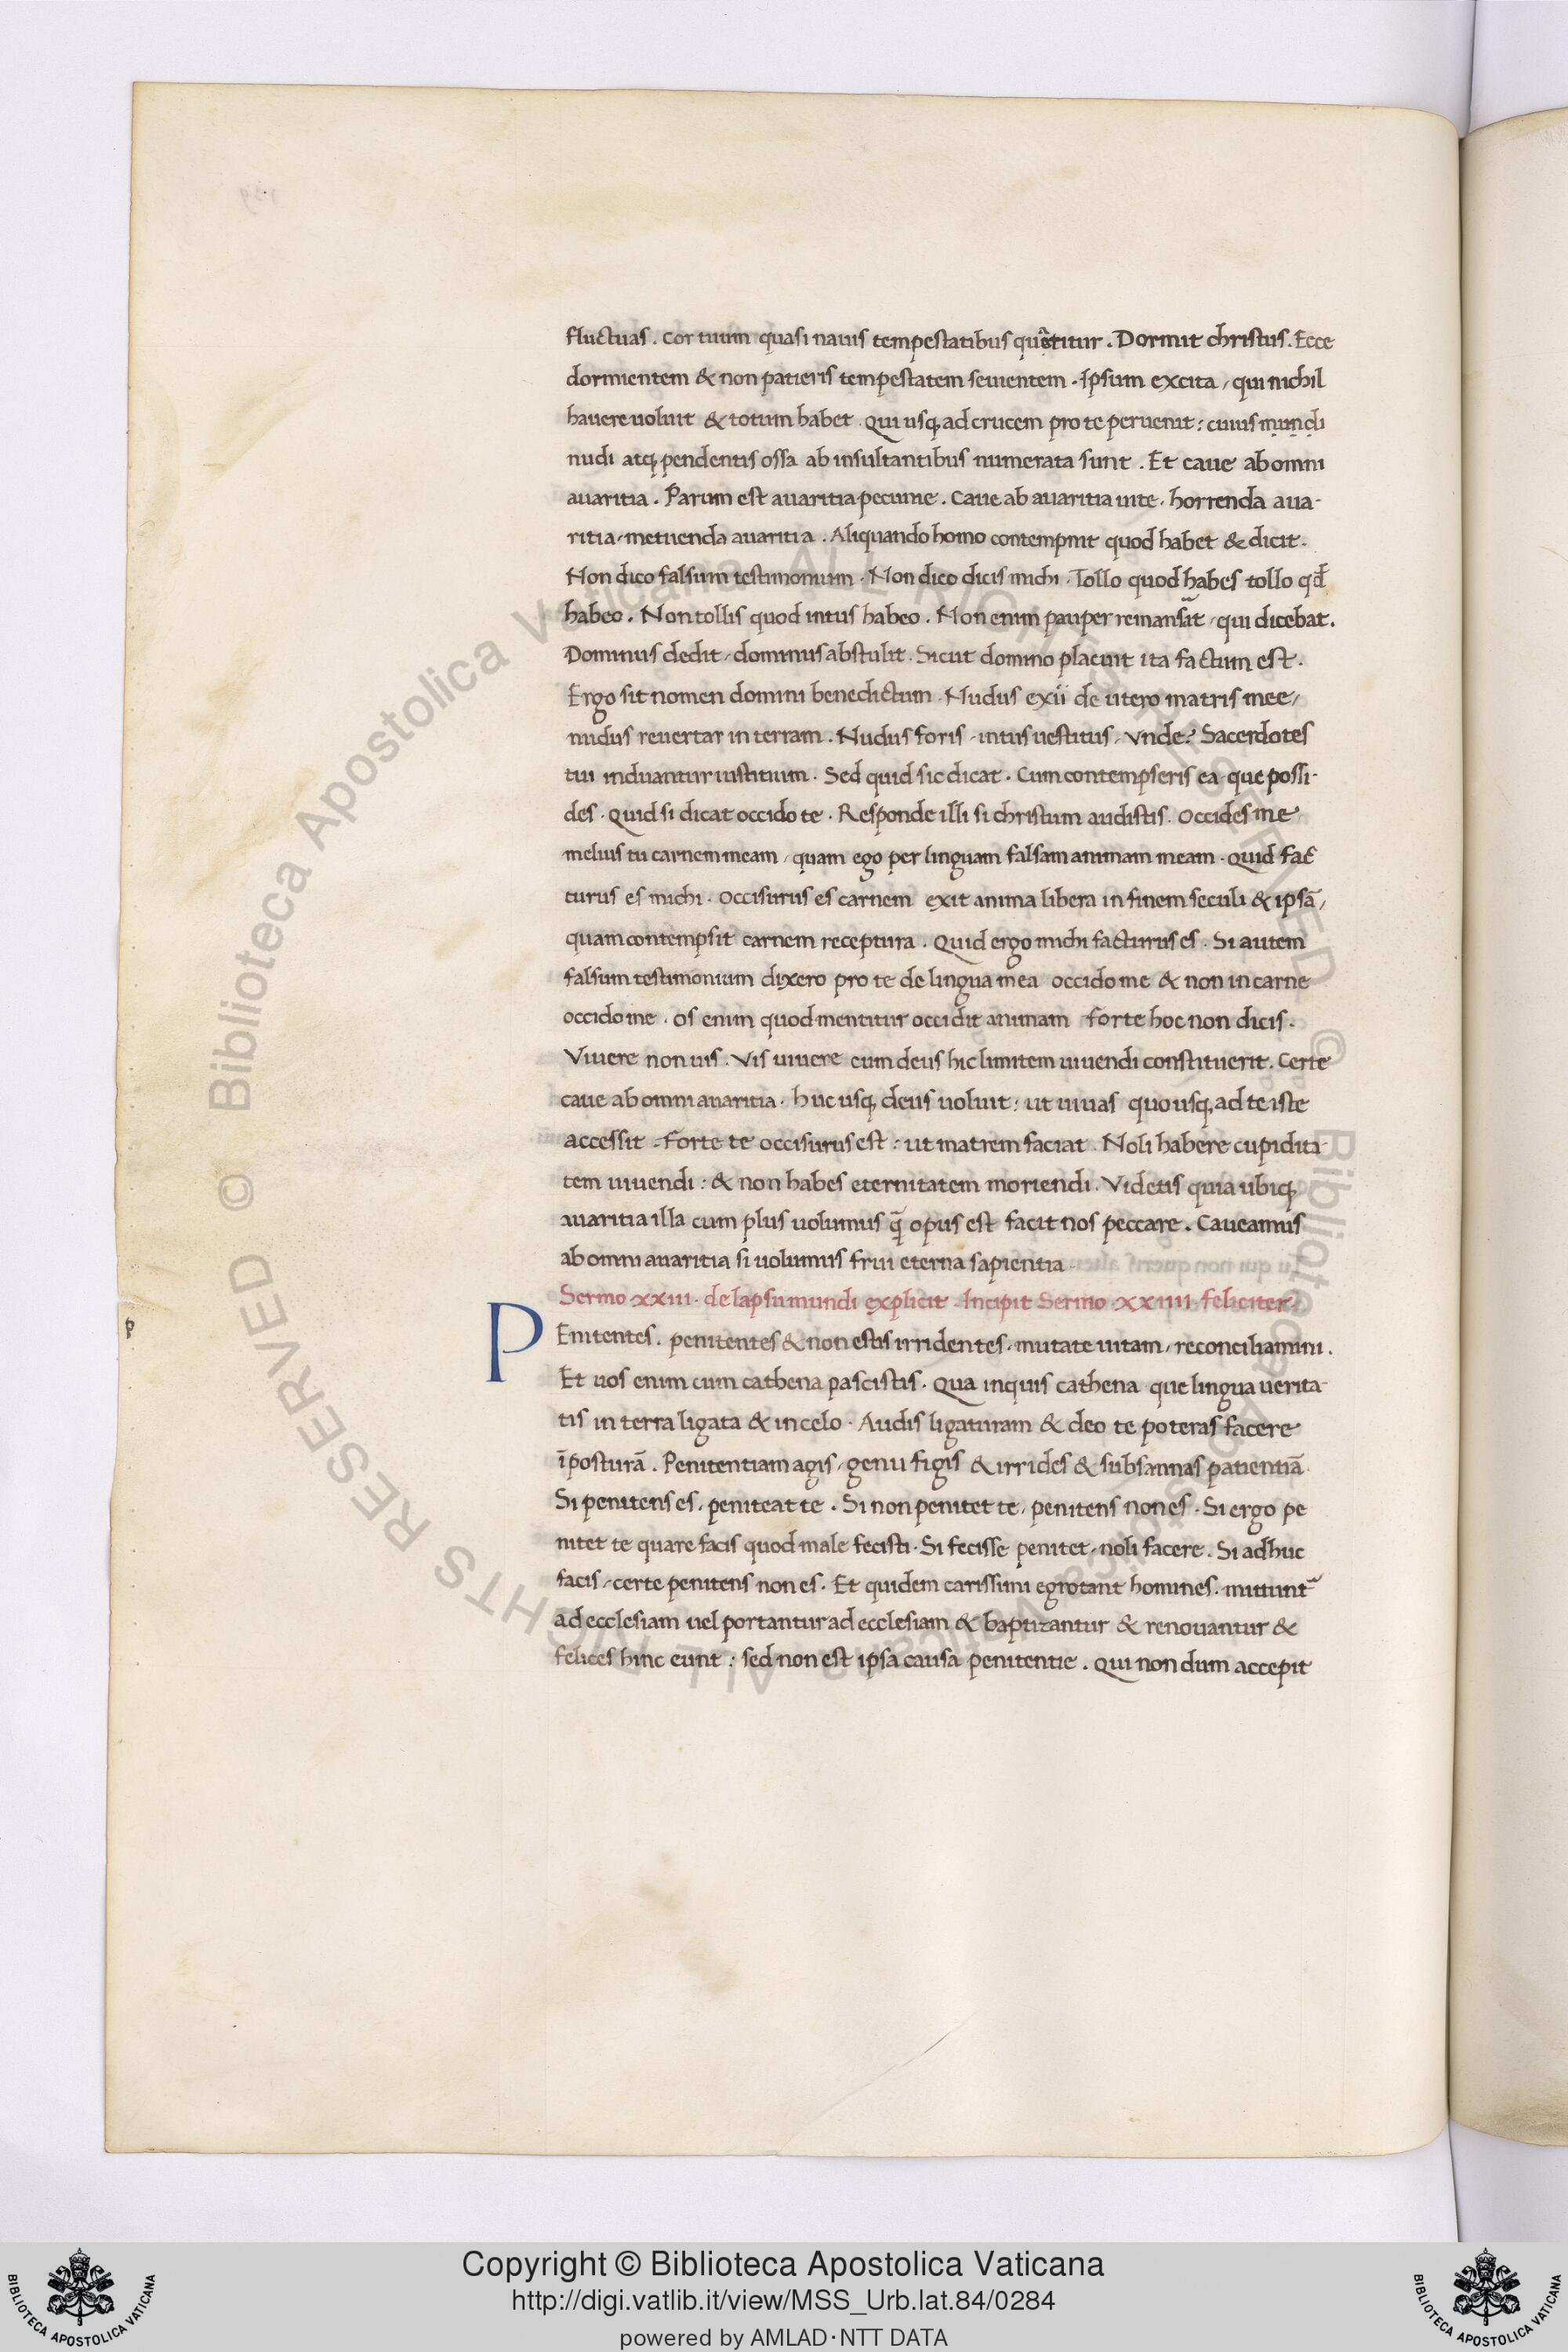 fluctuas . cor tuum quasi nauis tempestatibus quãtitur . Dormit christus . Ecce
dormientem & non patieris tempestatem seuientem . Ipsum excita / qui nichil
hauere uoluit & totum habet . Qui usq; ad crucem pro te peruenit : cuius mundi
nudi atq; pendentis ossa ab insultantibus numerata sunt . Et caue ab omni
auaritia . Parum est auaritia pecunie . Caue ab auaritia uite . horrenda aua-
ritia / metuenda auaritia . Aliquando homo contempnit quod habet & dicit .
Non dico falsum testimonium . Non dico dicis michi . Tollo quod habes tollo qd̄
habeo . Non tollis quod intus habeo . Non enim pauper remansãt / qui dicebat .
Dominus dedit / dominus abstulit . Sicut domino placuit ita factum est .
Ergo sit nomen domini benedictum . Nudus exii de utero matris mee /
nudus reuertar in terram . Nudus foris . intus uestitus . Vnde ? Sacerdotes
tui induantur iustitium . Sed quid sic dicat . Cum contempseris ea que possi-
des . Quid si dicat occido te . Responde illi si christum audistis . Occides me
melius tu carnem meam / quam ego per linguam falsam animam meam . Quid fac
turus es michi . Occisurus es carnem exit anima libera in finem seculi & ipsā /
quam contempsit carnem receptura . Quid ergo michi facturus es . Si autem
falsum testimonium dixero pro te de lingua mea occido me & non in carne
occido me . Os enim quod mentitur occidit animam forte hoc non dicis .
Viuere non uis . Vis uiuere cum deus hic limitem uiuendi constituerit . Certe
caue ab omni auaritia . huc usq; deus uoluit : ut uiuas quo usq; ad te iste
accessit . Forte te occisurus est : ut matrem faciat . Noli habere cupidita-
tem uiuendi : & non habes eternitatem moriendi . Videtis quia ubiq;
auaritia illa cum plus uolumus q̄ opus est facit nos peccare . Caueamus
ab omni auaritia si uolumus frui eterna sapientia .
Sermo . xxiii . de lapsu mundi explicit . Incipit Sermo . xxiiii . feliciter .
PEnitentes . penitentes & non estis irridentes . mutate uitam / reconciliamini .
Et uos enim cum cathena pascistis . Qua inquis cathena que lingua uerita-
tis in terra ligata & in celo . Audis ligaturam & deo te poteras facere
īposturā . Penitentiam agis / genu figis & irrides & subsannas patientiā .
Si penitens es . peniteat te . Si non penitet te . penitens non es . Si ergo pe
nitet te quare facis quod male fecisti . Si fecisse penitet . noli facere . Si adhuc
facis / certe penitens non es . Et quidem carissimi egrotant homines . mittunt᷑
ad ecclesiam uel portantur ad ecclesiam & baptizantur & renouantur &
felices hinc eunt : sed non est ipsa causa penitentie . Qui non dum accepit
p
© Biblioteca Apostolica Vaticana ALL RIGHTS RESERVED
Copyright © Biblioteca Apostolica Vaticana
http://digi.vatlib.it/view/MSS_Urb.lat.84/0284
powered by AMLAD·NTT DATA
BIBLIOTECA APOSTOLICA VATICANA
BIBLIOTECA APOSTOLICA VATICANA